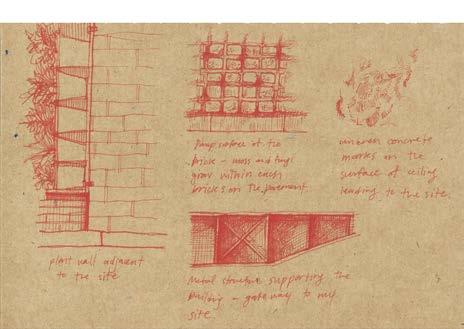 Damp surface of the
brick - moss and fungi
grow within each
bricks on the pavement.
uneven concrete
marks on the
surface of ceiling
leading to the site.
plant wall adjacent
to the site
Metal structure supporting the
building - gateway to my
site.